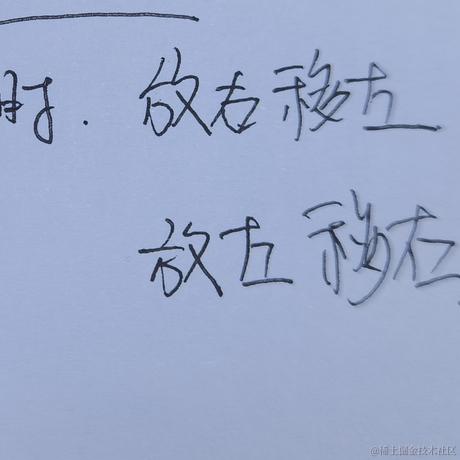 时. 放右移左
放左移右
@稀土掘金技术社区